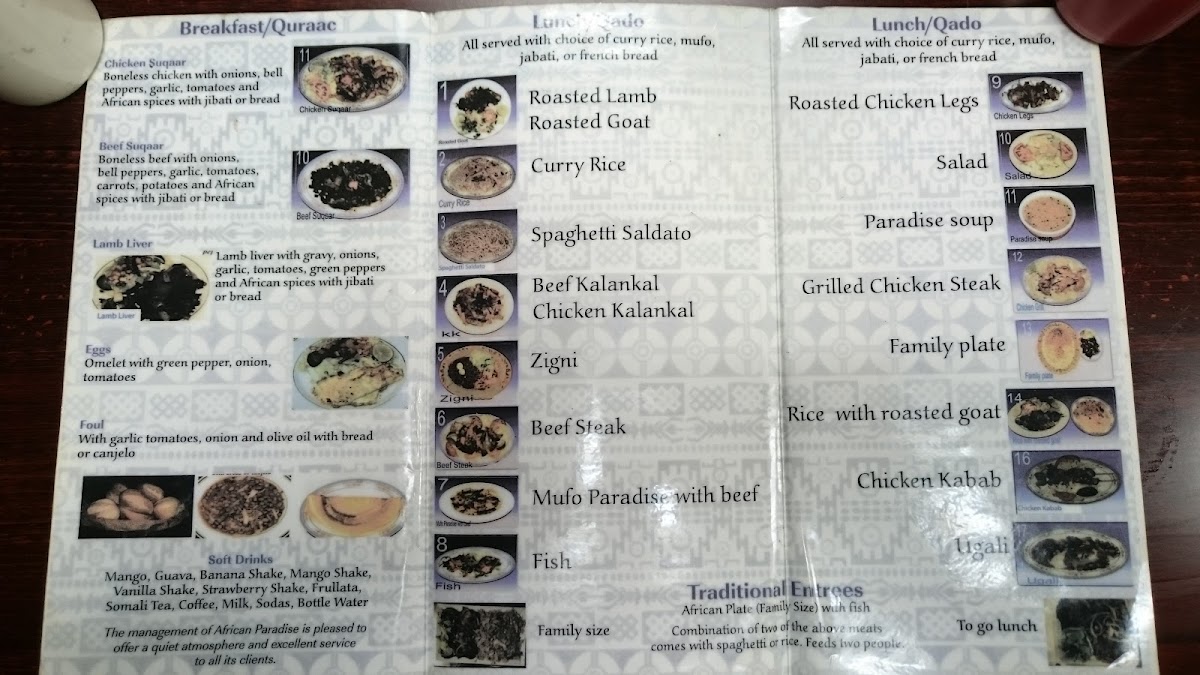 Breakfast/Quraac
Chicken Suqaar
Boneless chicken with onions, bell
peppers, garlic, tomatoes and
African spices with jibati or bread
11
Chicken Suqaar
Beef Suqaar
Boneless beef with onions,
bell peppers, garlic, tomatoes,
carrots, potatoes and African
spices with jibati or bread
10
Beef Suqaar
Lamb Liver
Lamb liver with gravy, onions,
garlic, tomatoes, green peppers
and African spices with jibati
or bread
Lamb Liver
Eggs
Omelet with green pepper, onion,
tomatoes
Foul
With garlic tomatoes, onion and olive oil with bread
or canjelo
Soft Drinks
Mango, Guava, Banana Shake, Mango Shake,
Vanilla Shake, Strawberry Shake, Frullata,
Somali Tea, Coffee, Milk, Sodas, Bottle Water
The management of African Paradise is pleased to
offer a quiet atmosphere and excellent service
to all its clients.
Lunch/Qado
All served with choice of curry rice, mufo,
jabati, or french bread
1
Roasted Goat
Roasted Lamb
Roasted Goat
2
Curry Rice
Curry Rice
3
Spaghetti Saldato
Spaghetti Saldato
4
kk
Beef Kalankal
Chicken Kalankal
5
Zigni
Zigni
6
Beef Steak
Beef Steak
7
Mufo Paradise with beef
8
Fish
Fish
Family size
Lunch/Qado
All served with choice of curry rice, mufo,
jabati, or french bread
Roasted Chicken Legs
9
Chicken Legs
Salad
10
Salad
Paradise soup
11
Paradise soup
Grilled Chicken Steak
12
Family plate
13
Family plate
Rice with roasted goat
14
Chicken Kabab
16
Chicken Kabab
Ugali
Ugali
Traditional Entrees
African Plate (Family Size) with fish
Combination of two of the above meats
comes with spaghetti or rice. Feeds two people.
To go lunch